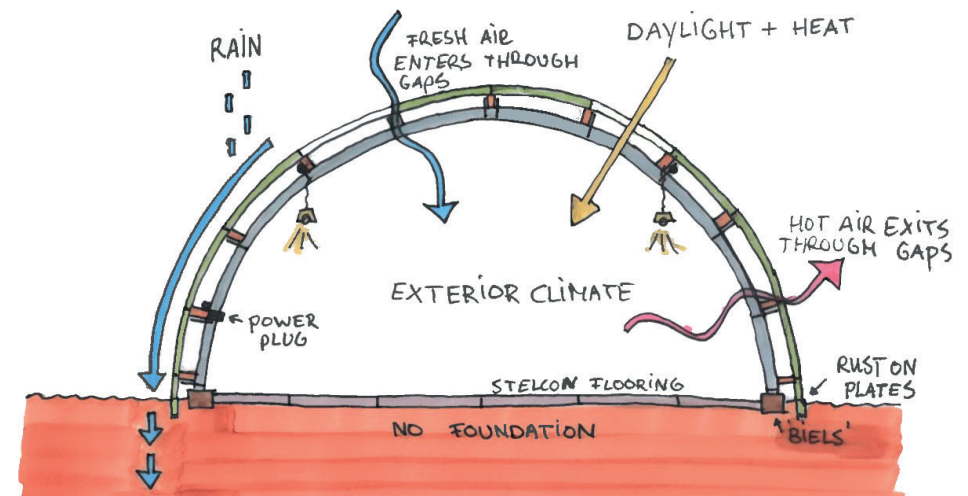 RAIN
FRESH AIR
ENTERS THROUGH
GAPS
DAYLIGHT + HEAT
HOT AIR EXITS
THROUGH GAPS
EXTERIOR CLIMATE
POWER
PLUG
STELCON FLOORING
RUST ON
PLATES
NO FOUNDATION
'BIELS'